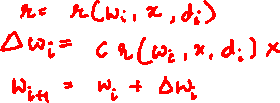 r = r(wi, x, di)
Δwi = c r(wi, x, di) x
wi+1 = wi + Δwi